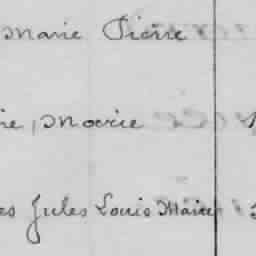 Marie Pierre
re, Marie
es Jules Louis Marie